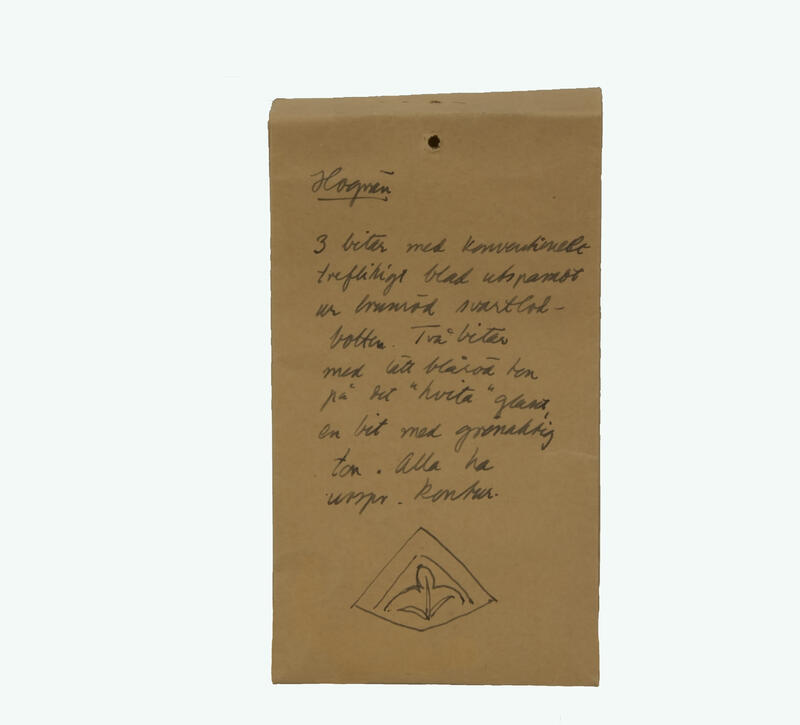 Hogrän
3 bitar med konventionellt
treflikigt blad utsparadt
ur brunröd svartlod-
botten. Två bitar
med lätt blåröd ton
på det "hvita" glaset,
en bit med grönaktig
ton. Alla ha
urspr. kontur.